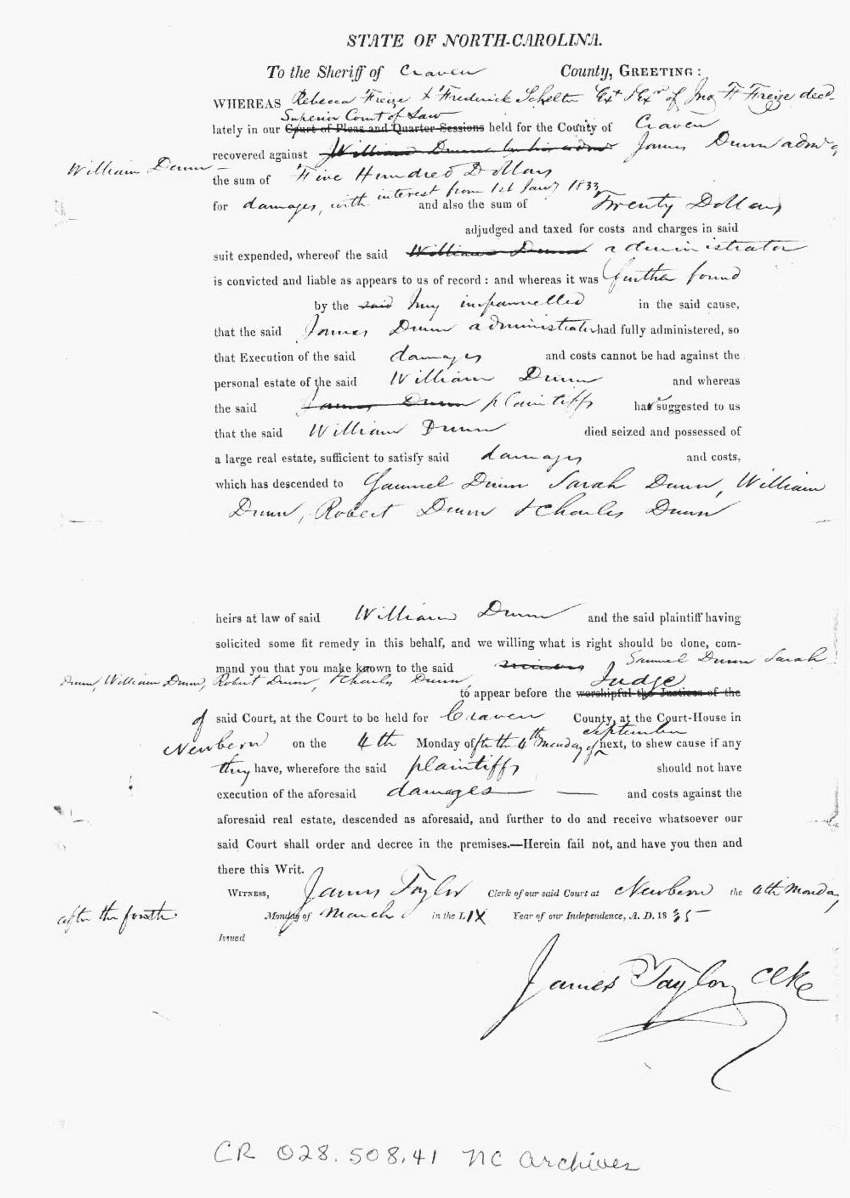 STATE OF NORTH-CAROLINA.
To the Sheriff of Craven County, GREETING:
WHEREAS Rebecca Freize & Frederick Ext & Exr of Jno F Freize decd
Superior Court of Law
lately in our Court of Pleas and Quarter Sessions held for the County of Craven
recovered against William Dunn by his admr James Dunn admr of
William Dunn –
the sum of Five Hundred Dollars
for damages, with interest from 1st Jany 1833 and also the sum of Twenty Dollars
adjudged and taxed for costs and charges in said
suit expended, whereof the said William Dunn administrator
is convicted and liable as appears to us of record: and whereas it was further found
by the said Jury impannelled in the said cause,
that the said James Dunn administrator had fully administered, so
that Execution of the said damages and costs cannot be had against the
personal estate of the said William Dunn and whereas
the said James Dunn plaintiffs have suggested to us
that the said William Dunn died seized and possessed of
a large real estate, sufficient to satisfy said damages and costs,
which has descended to Samuel Dunn Sarah Dunn, William
Dunn, Robert Dunn & Charles Dunn
heirs at law of said William Dunn and the said plaintiff having
solicited some fit remedy in this behalf, and we willing what is right should be done, com-
mand you that you make known to the said Samuel Dunn Sarah
Dunn, William Dunn, Robert Dunn, & Charles Dunn,
Judge
to appear before the worshipful the Justices of the
of said Court, at the Court to be held for Craven County, at the Court-House in
Newbern on the 4th Monday after the 4th Monday of September next, to shew cause if any
they have, wherefore the said plaintiffs should not have
execution of the aforesaid damages — — and costs against the
aforesaid real estate, descended as aforesaid, and further to do and receive whatsoever our
said Court shall order and decree in the premises.—Herein fail not, and have you then and
there this Writ.
WITNESS, James Taylor Clerk of our said Court at Newbern the 4th Monday
after the fourth Monday of March in the LIX Year of our Independence, A. D. 1835
Issued
James Taylor Clk
CR 028.508.41 NC Archives